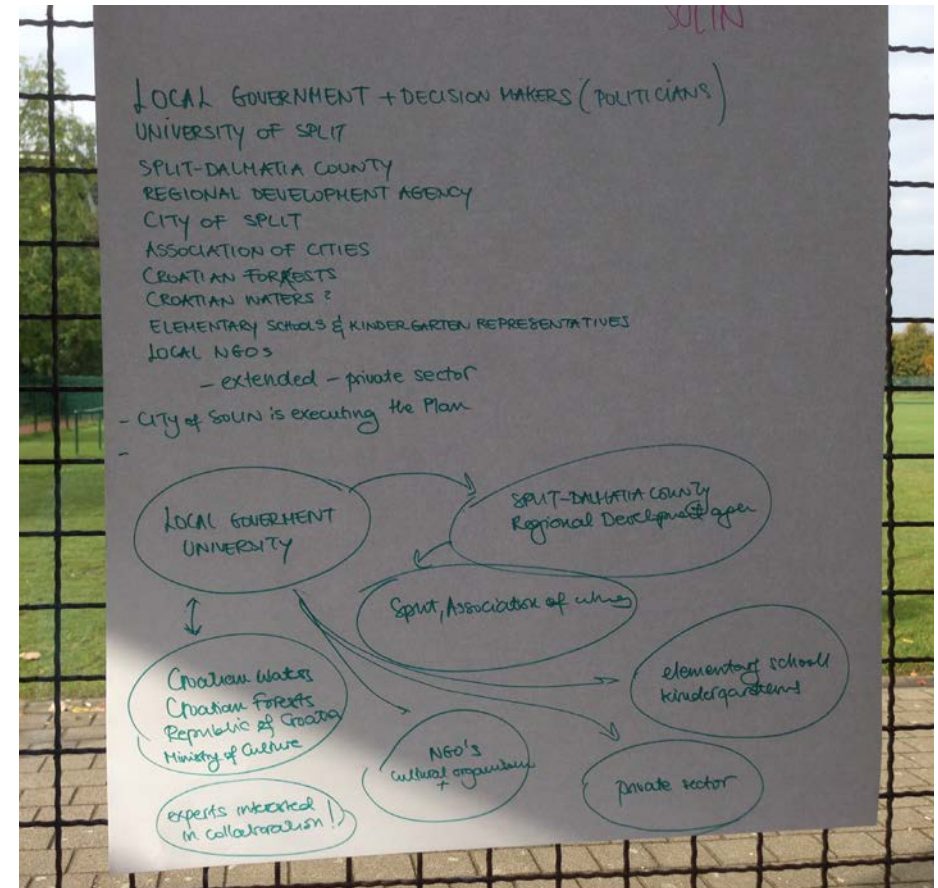 SOLIN
LOCAL GOVERNMENT + DECISION MAKERS (POLITICIANS)
UNIVERSITY OF SPLIT
SPLIT-DALMATIA COUNTY
REGIONAL DEVELOPMENT AGENCY
CITY OF SPLIT
ASSOCIATION OF CITIES
CROATIAN FORESTS
CROATIAN WATERS ?
ELEMENTARY SCHOOLS & KINDERGARTEN REPRESENTATIVES
LOCAL NGOS
- extended - private sector
- CITY of SOLIN is executing the Plan
-
LOCAL GOVERMENT
UNIVERSITY
SPLIT-DALMATIA COUNTY
Regional Development
Split, Association of
Croatian Waters
Croatian Forests
Republic of Croatia
Ministry of Culture
elementary school
kindergartens
NGO's
cultural
+
private sector
experts interested
in collaboration!